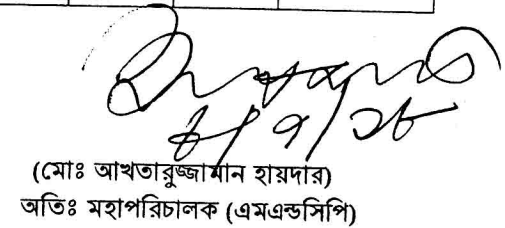 (মোঃ আখতারুজ্জামান হায়দার)
অতিঃ মহাপরিচালক (এমএন্ডসিপি)